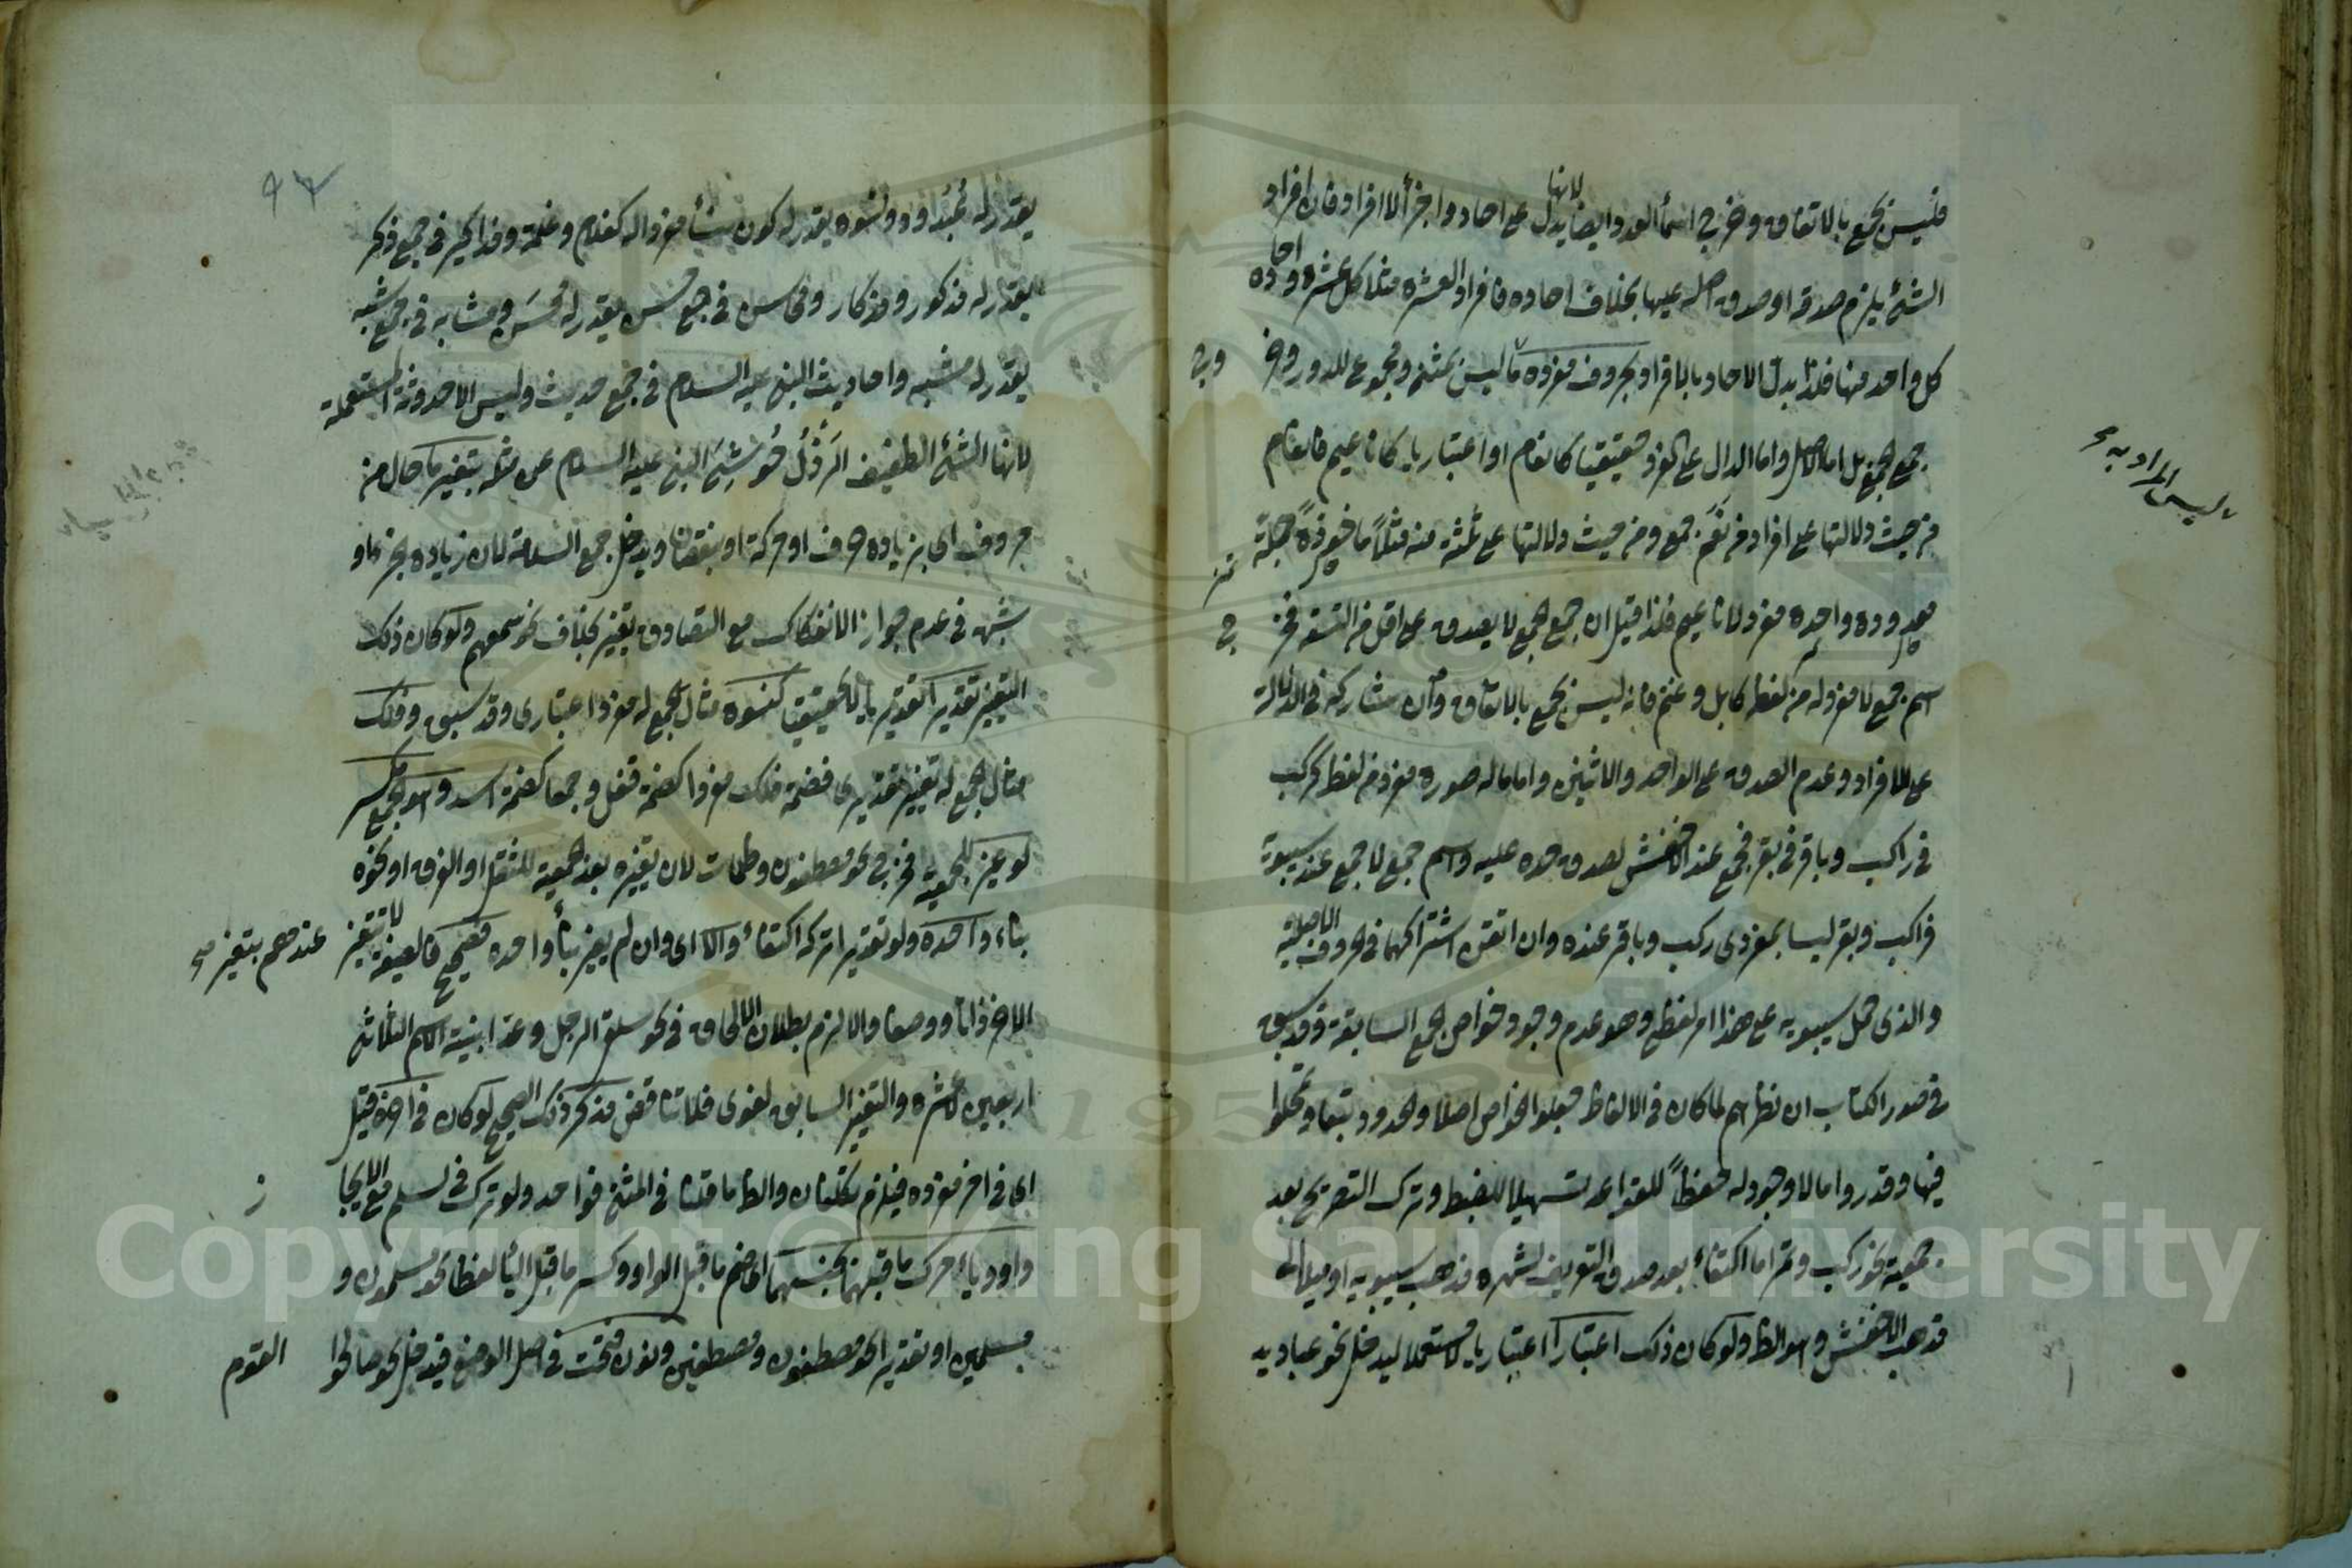 فليس بجمع بالاتفاق وخرج اسماء العدد ايضا لانها يدل على احاد واجزاء لا افراد فان افراد
الشئ يلزم صدقه او صدق اصله عليها بخلاف احاده فافراد العشرة مثلا كل عشرة واحاده
كل واحد منها فلذا بدل الاحاد بالافراد بحروف مفرده ما ليس بمثنى ومجموع
جمع الجمع بل اما الاصل واما الدال على الفرد حقيقيا كانعام او اعتباريا كاناعيم فانعام
من حيث دلالتها على افراد من نعم جمع ومن حيث دلالتها على ثلثة منه مثلا مأخوذة جملة
معدودة واحدة مفرد لاناعيم فلذا قيل ان جمع الجمع لا يصدق على اقل من التسعة فخرج
اسم جمع لا مفرد له من لفظه كابل وغنم فانه ليس بجمع بالاتفاق وان شاركه في الدلالة
على الافراد وعدم الصدق على الواحد والاثنين واما ما له صورة مفرد من لفظه كركب
في راكب وباقر في بقر فجمع عند الاخفش لصدق حده عليه واسم جمع لا جمع عند سيبويه
فراكب وبقر ليسا بمفردي ركب وباقر عنده وان اتفق اشتراكهما في حروف الاصلية
والذي حمل سيبويه على هذا امر لفظي وهو عدم وجود خواص الجمع السابقة وقد سبق
في صدر الكتاب ان نظرهم لما كان في الالفاظ جعلوا الخواص اصلا والحدود تبعا وتمحلوا
فيها وقدروا ما لا وجود له حفظا للقواعد تسهيلا للضبط وترك التصريح بعد
جمعية نحو ركب وتمر اما اكتفاء بعد صدق التعريف لشهرة مذهب سيبويه او ميلا الى
مذهب الاخفش وهو الظ ولو كان ذلك اعتبارا اعتباريا لا مستعملا ليدخل نحو عباديد
ليس المراد به
يقدر له عبدود ونسوه يقدر له كون نساء مفرد اله كغلام وغلمة ومذاكير في جمع ذكر
يقدر له مذكور ومذكار ومحاسن في جمع حسن يقدر له محسن ومشابه في جمع شبه
يقدر له مشبه واحاديث النبي عليه السلام في جمع حديث وليس الاحدوثة المستعملة
لانها الشئ الطفيف الرذل حوشي النبي عليه السلام عن مثله بتغير ما حال من
حروف اى بزيادة حرف او حركة او بنقصان ويدخل جمع السلامة لان زياده بجزء او
شبه في عدم جواز الانفكاك مع التصادق بتغير بخلاف نحو سمعهم ولو كان ذلك
التغير تقديرا تقديريا لا حقيقيا كنسوة مثال لجمع له مفرد اعتبارى وقد سبق وفلك
مثال لجمع له تغير تقديرى فضمة فلك مفردا كضمة قفل وجمعا كضمة اسد وهو الجمع مكسر
لو غير للجمعية فخرج نحو مصطفون وطلحات لان تغيره بعد الجمعية للثقل او الفرق او نحوه
بناء واحده ولو تقديرا تركه اكتفاء والا اى وان لم يغير بناء واحده فصحيح فالصيغة لا تتغير عندهم بتغير صح
الاخر ذاتا ووصفا والا لزم بطلان الالحاق في نحو سلقى الرجل وعد ابنية الاسم الثلاثى
اربعين لا عشرة والتغير السابق لغوى فلا تناقض مذكر ذلك الصحيح لو كان في آخره قيل
اى في اخر مفرده فيلزم تكلفان والظ ما قلنا في المثنى فواحد ولو ترك في لسلم مع الايجا
واو او ياء حرك ما قبلهما بجنسهما اى ضم ما قبل الواو وكسر ما قبل الياء لفظا نحو مسلمون و
مسلمين او تقديرا نحو مصطفون ومصطفين ونون فتحت في اصل الوضع فيدخل نحو صالحوا
القوم
Copyright © King Saud University
1957